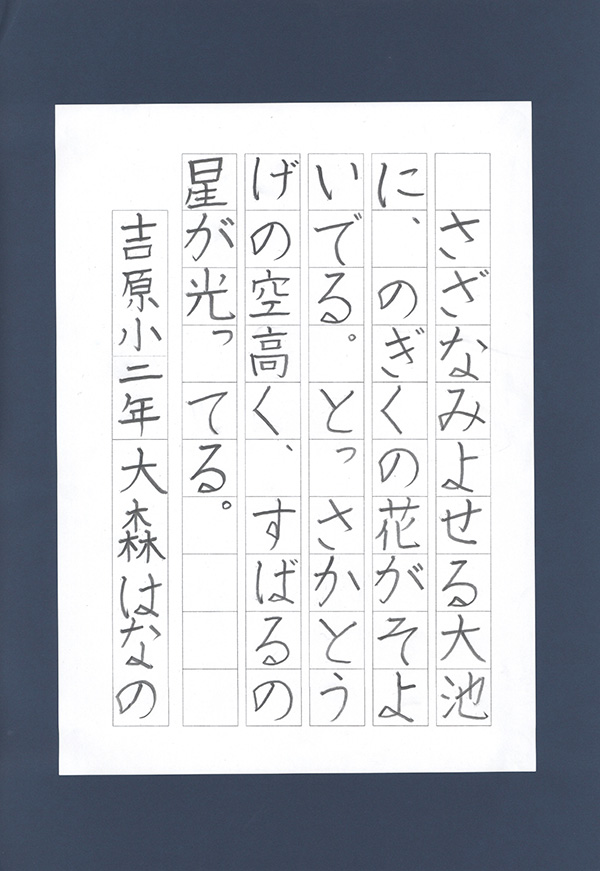 さざなみよせる大池
に、のぎくの花がそよ
いでる。とっさかとう
げの空高く、すばるの
星が光ってる。
吉原小二年大森はなの